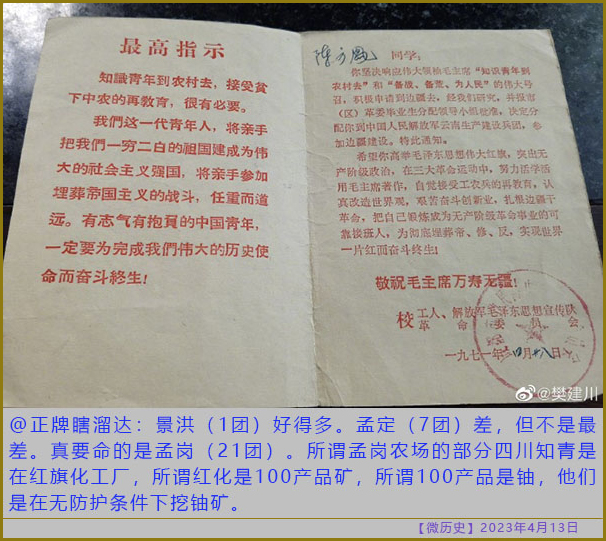 最高指示
知識青年到农村去，接受贫
下中农的再教育，很有必要。
我們这一代青年人，将亲手
把我們一穷二白的祖国建成为伟
大的社会主义强国，将亲手参加
埋葬帝国主义的战斗，任重而道
远。有志气有抱負的中国青年，
一定要为完成我們伟大的历史使
命而奋斗終生！
同学：
你坚决响应伟大领袖毛主席“知识青年到
农村去”和“备战、备荒、为人民”的伟大号
召，积极申请到边疆去，经我们研究，并报市
（区）革委毕业分配领导小组批准，决定分
配你到中国人民解放军云南生产建设兵团，参
加边疆建设。特此通知。
希望你高举毛泽东思想伟大红旗，突出无
产阶级政治，在三大革命运动中，努力活学活
用毛主席著作，自觉接受工农兵的再教育，认
真改造世界观，艰苦奋斗创新业，扎根边疆干
革命，把自己锻炼成为无产阶级革命事业的可
靠接班人，为彻底埋葬帝、修、反，实现世界
一片红而奋斗终生！
敬祝毛主席万寿无疆！
校工人、解放军毛泽东思想宣传队
革命委员会
一九七一年 四月十八日
@樊建川
@正牌瞎溜达：景洪（1团）好得多。孟定（7团）差，但不是最
差。真要命的是孟岗（21团）。所谓孟岗农场的部分四川知青是
在红旗化工厂，所谓红化是100产品矿，所谓100产品是铀，他们
是在无防护条件下挖铀矿。
【微历史】2023年4月13日